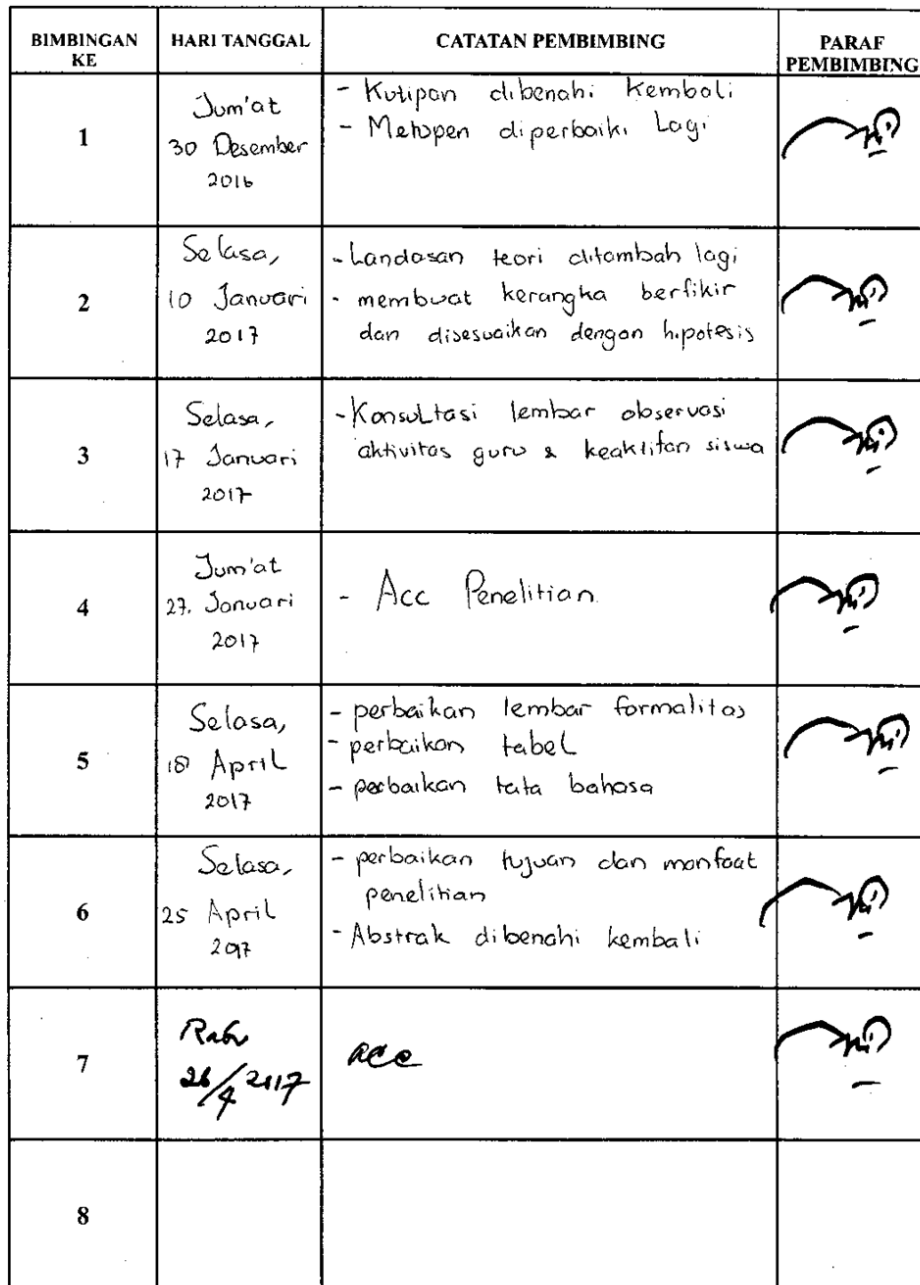 BIMBINGAN KE HARI TANGGAL CATATAN PEMBIMBING PARAF PEMBIMBING
1
Jum'at
30 Desember
2016
- Kutipan dibenahi kembali
- Metopen diperbaiki Lagi
2
Selasa,
10 Januari
2017
- Landasan teori ditambah lagi
- membuat kerangka berfikir
dan disesuaikan dengan hipotesis
3
Selasa,
17 Januari
2017
- Konsultasi lembar observasi
aktivitas guru & keaktifan siswa
4
Jum'at
27. Januari
2017
- Acc Penelitian.
5
Selasa,
18 April
2017
- perbaikan lembar formalitas
- perbaikan tabel
- perbaikan tata bahasa
6
Selasa,
25 April
2017
- perbaikan tujuan dan manfaat
penelitian
- Abstrak dibenahi kembali
7
Rabu
26/4 2017
acc
8